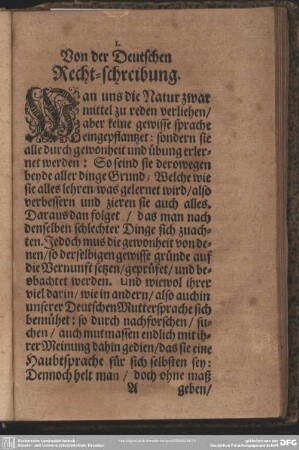 1.
Von der Deutschen
Recht-schreibung.
Wan uns die Natur zwar
mittel zu reden verliehen/
aber keine gewisse sprache
eingepflantzet: sondern sie
alle durch gewonheit und übung erler-
net werden: So seind sie derowegen
beyde aller dinge Grund; Welche wie
sie alles lehren/ was gelernet wird/ also
verbessern und zieren sie auch alles.
Daraus dan folget / das man nach
denselben schlechter Dinge sich zuach-
ten. Jedoch mus die gewonheit von de-
nen/ so derselbigen gewisse gründe auf
die Vernunft setzen/ geprüfet/ und be-
obachtet werden. Und wiewol ihrer
viel darin/ wie in andern/ also auch in
unserer Deutschen Muttersprache sich
bemühet: so durch nachforschen/ su-
chen / auch mutmassen endlich mit ih-
rer Meinung dahin gedien/ das sie eine
Haubtsprache für sich selbsten sey:
Dennoch helt man / doch ohne maß
A geben/